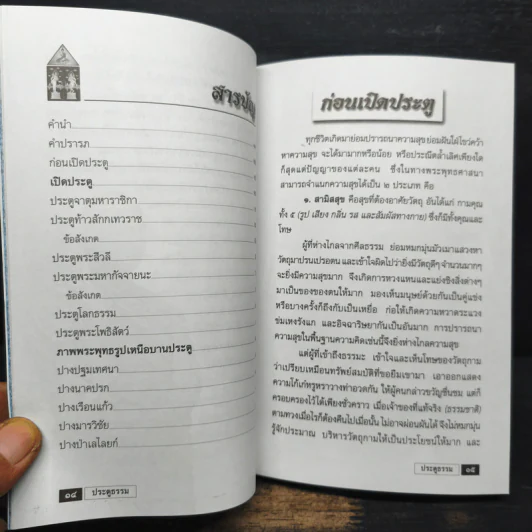 สารบัญ
คำนำ
คำปรารภ
ก่อนเปิดประตู
เปิดประตู
ประตูจาตุมหาราชิกา
ประตูท้าวสักกเทวราช
ข้อสังเกต
ประตูพระสิวลี
ประตูพระมหากัจจายนะ
ข้อสังเกต
ประตูโลกธรรม
ประตูพระโพธิสัตว์
ภาพพระพุทธรูปเหนือบานประตู
ปางปฐมเทศนา
ปางนาคปรก
ปางเรือนแก้ว
ปางมารวิชัย
ปางป่าเลไลยก์
๑๔ ประตูธรรม
ก่อนเปิดประตู
ทุกชีวิตเกิดมาย่อมปรารถนาความสุข ย่อมฝันใฝ่ไขว่คว้า
หาความสุข จะได้มามากหรือน้อย หรือประณีตล้ำเลิศเพียงใด
ก็สุดแต่ปัญญาของแต่ละคน ซึ่งในทางพระพุทธศาสนา
สามารถจำแนกความสุขได้เป็น ๒ ประเภท คือ
๑. สามิสสุข คือสุขที่ต้องอาศัยวัตถุ อันได้แก่ กามคุณ
ทั้ง ๕ (รูป เสียง กลิ่น รส และสัมผัสทางกาย) ซึ่งก็มีทั้งคุณและ
โทษ
ผู้ที่ห่างไกลจากศีลธรรม ย่อมหมกมุ่นมัวเมาแสวงหา
วัตถุมาปรนเปรอตน และเข้าใจผิดไปว่ายิ่งมีวัตถุดีๆ จำนวนมากๆ
จะยิ่งมีความสุขมาก จึงเกิดการหวงแหนและแย่งชิงสิ่งต่างๆ
มาเป็นของของตนให้มาก มองเห็นมนุษย์ด้วยกันเป็นคู่แข่ง
หรือบางครั้งก็ถึงกับเป็นเหยื่อ ก่อให้เกิดความหวาดระแวง
ข่มเหงรังแก และอิจฉาริษยากันเป็นอันมาก การปรารถนา
ความสุขในพื้นฐานความคิดเช่นนี้จึงยิ่งห่างไกลความสุข
แต่ผู้ที่เข้าถึงธรรมะ เข้าใจและเห็นโทษของวัตถุกาม
ว่าเปรียบเหมือนทรัพย์สมบัติที่ขอยืมเขามา เอาออกแสดง
ความโก้เก๋หรูหราวางท่าอวดกัน ให้ผู้คนกล่าวขวัญชื่นชม แต่ก็
ครอบครองไว้ได้เพียงชั่วคราว เมื่อเจ้าของที่แท้จริง (ธรรมชาติ)
ตามทวงเมื่อไรก็ต้องคืนไปเมื่อนั้น ไม่อาจผ่อนผันได้ จึงไม่หมกมุ่น
รู้จักประมาณ บริหารวัตถุกามให้เป็นประโยชน์ให้มาก และ
ประตูธรรม ๑๕